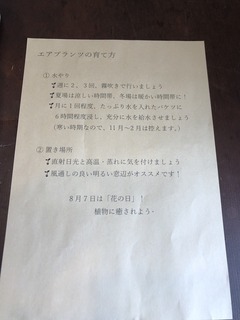 エアプランツの育て方
① 水やり
週に2、3回、霧吹きで行いましょう
夏場は涼しい時間帯、冬場は暖かい時間帯に!
月に1回程度、たっぷり水を入れたバケツに
6時間程度浸し、充分に水を給水させましょう
(寒い時期なので、11月~2月は控えます。)
② 置き場所
直射日光と高温・蒸れに気を付けましょう
風通しの良い明るい窓辺がオススメです!
8月7日は「花の日」!
植物に癒されよう